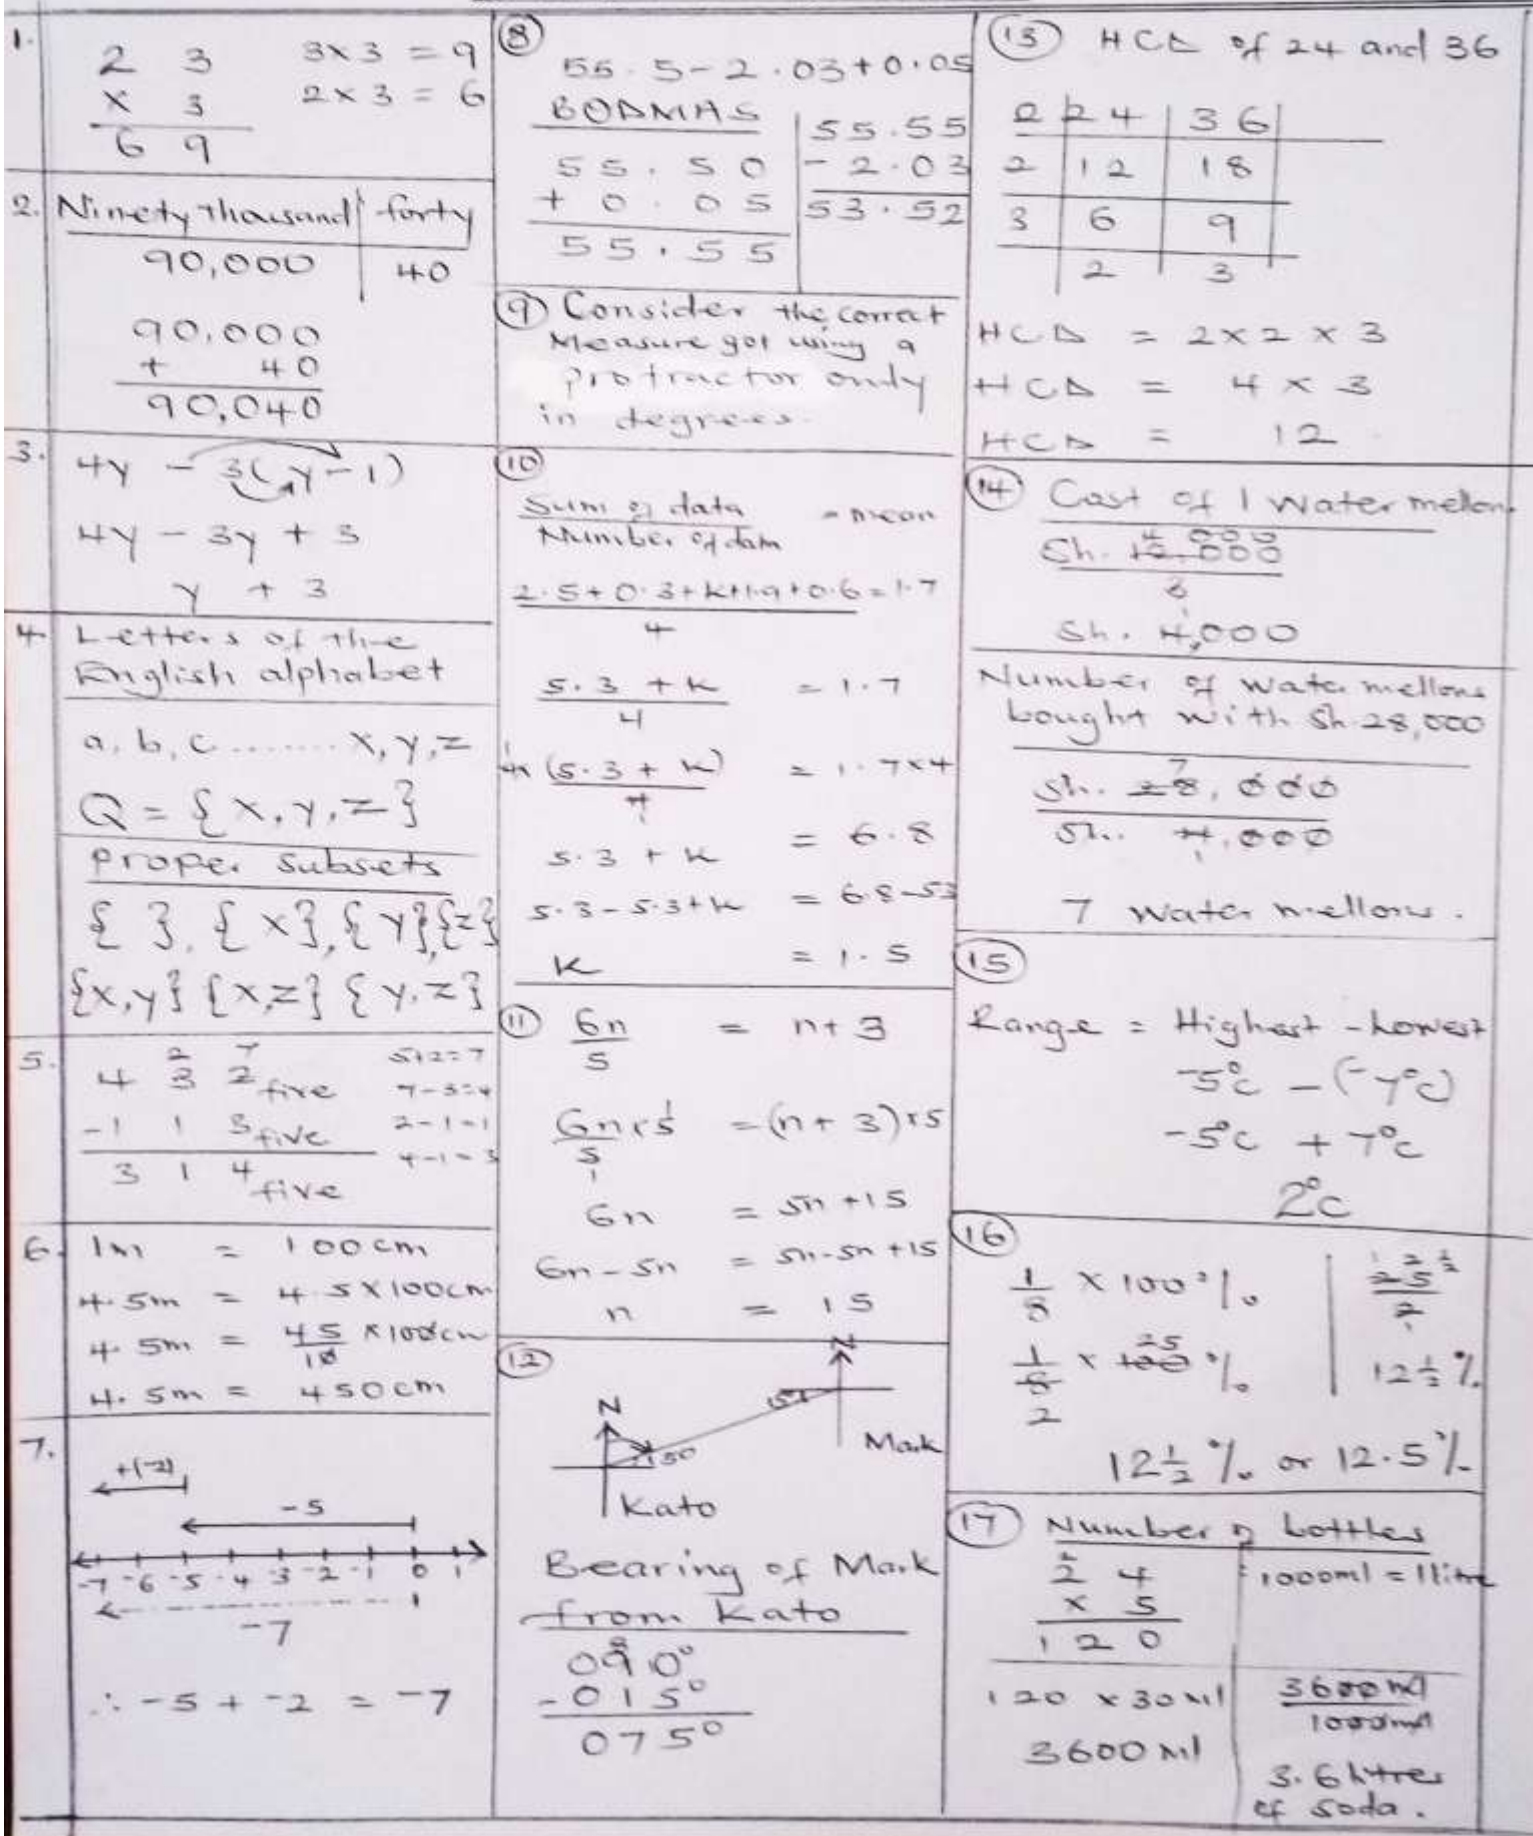 1.
2 3    3×3 = 9
× 3    2×3 = 6
6 9
2. Ninety thousand | forty
90,000 | 40
90,000
+ 40
90,040
3. 4y - 3(y-1)
4y - 3y + 3
y + 3
4. Letters of the
English alphabet
a, b, c ....... x, y, z
Q = {x, y, z}
Proper subsets
{ }, {x}, {y}, {z}
{x,y} {x,z} {y,z}
5.
2 7    5+2=7
4 3 2 five    7-3=4
-1 1 3 five    2-1=1
4-1=3
3 1 4 five
6. 1m = 100cm
4.5m = 4.5×100cm
4.5m = 45/10 ×100cm
4.5m = 450cm
7.
+(-2)
-5
-7 -6 -5 -4 -3 -2 -1 0 1
-7
∴ -5 + -2 = -7
8
55.5-2.03+0.05
BODMAS
55.50 | 55.55
+ 0.05 | - 2.03
55.55 | 53.52
9 Consider the correct
Measure got using a
protractor only
in degrees.
10
Sum of data = mean
Number of data
2.5+0.3+k+1.9+0.6 = 1.7
4
5.3 + k = 1.7
4
4×(5.3 + k) = 1.7×4
4
5.3 + k = 6.8
5.3-5.3+k = 6.8-5.3
k = 1.5
11 6n/5 = n+3
6n×5/5 = (n+3)×5
6n = 5n+15
6n-5n = 5n-5n+15
n = 15
12
N
N
15°
15°
Mark
Kato
Bearing of Mark
from Kato
090°
-015°
075°
13 HCD of 24 and 36
2 | 24 | 36
2 | 12 | 18
3 | 6 | 9
2 | 3
HCD = 2×2×3
HCD = 4×3
HCD = 12
14 Cost of 1 water mellon
4 000
Sh. 12,000
3
Sh. 4,000
Number of water mellons
bought with Sh.28,000
7
Sh. 28,000
Sh. 4,000
7 water mellons.
15
Range = Highest - Lowest
-5°c - (-7°c)
-5°c + 7°c
2°c
16
1/8 × 100% | 25/2
1/8 × 100% | 12½%
25
2
12½% or 12.5%
17 Number of bottles
24
× 5
120
1000ml = 1litre
120 × 30ml
3600ml
3600ml
1000ml
3.6 litres
of soda.